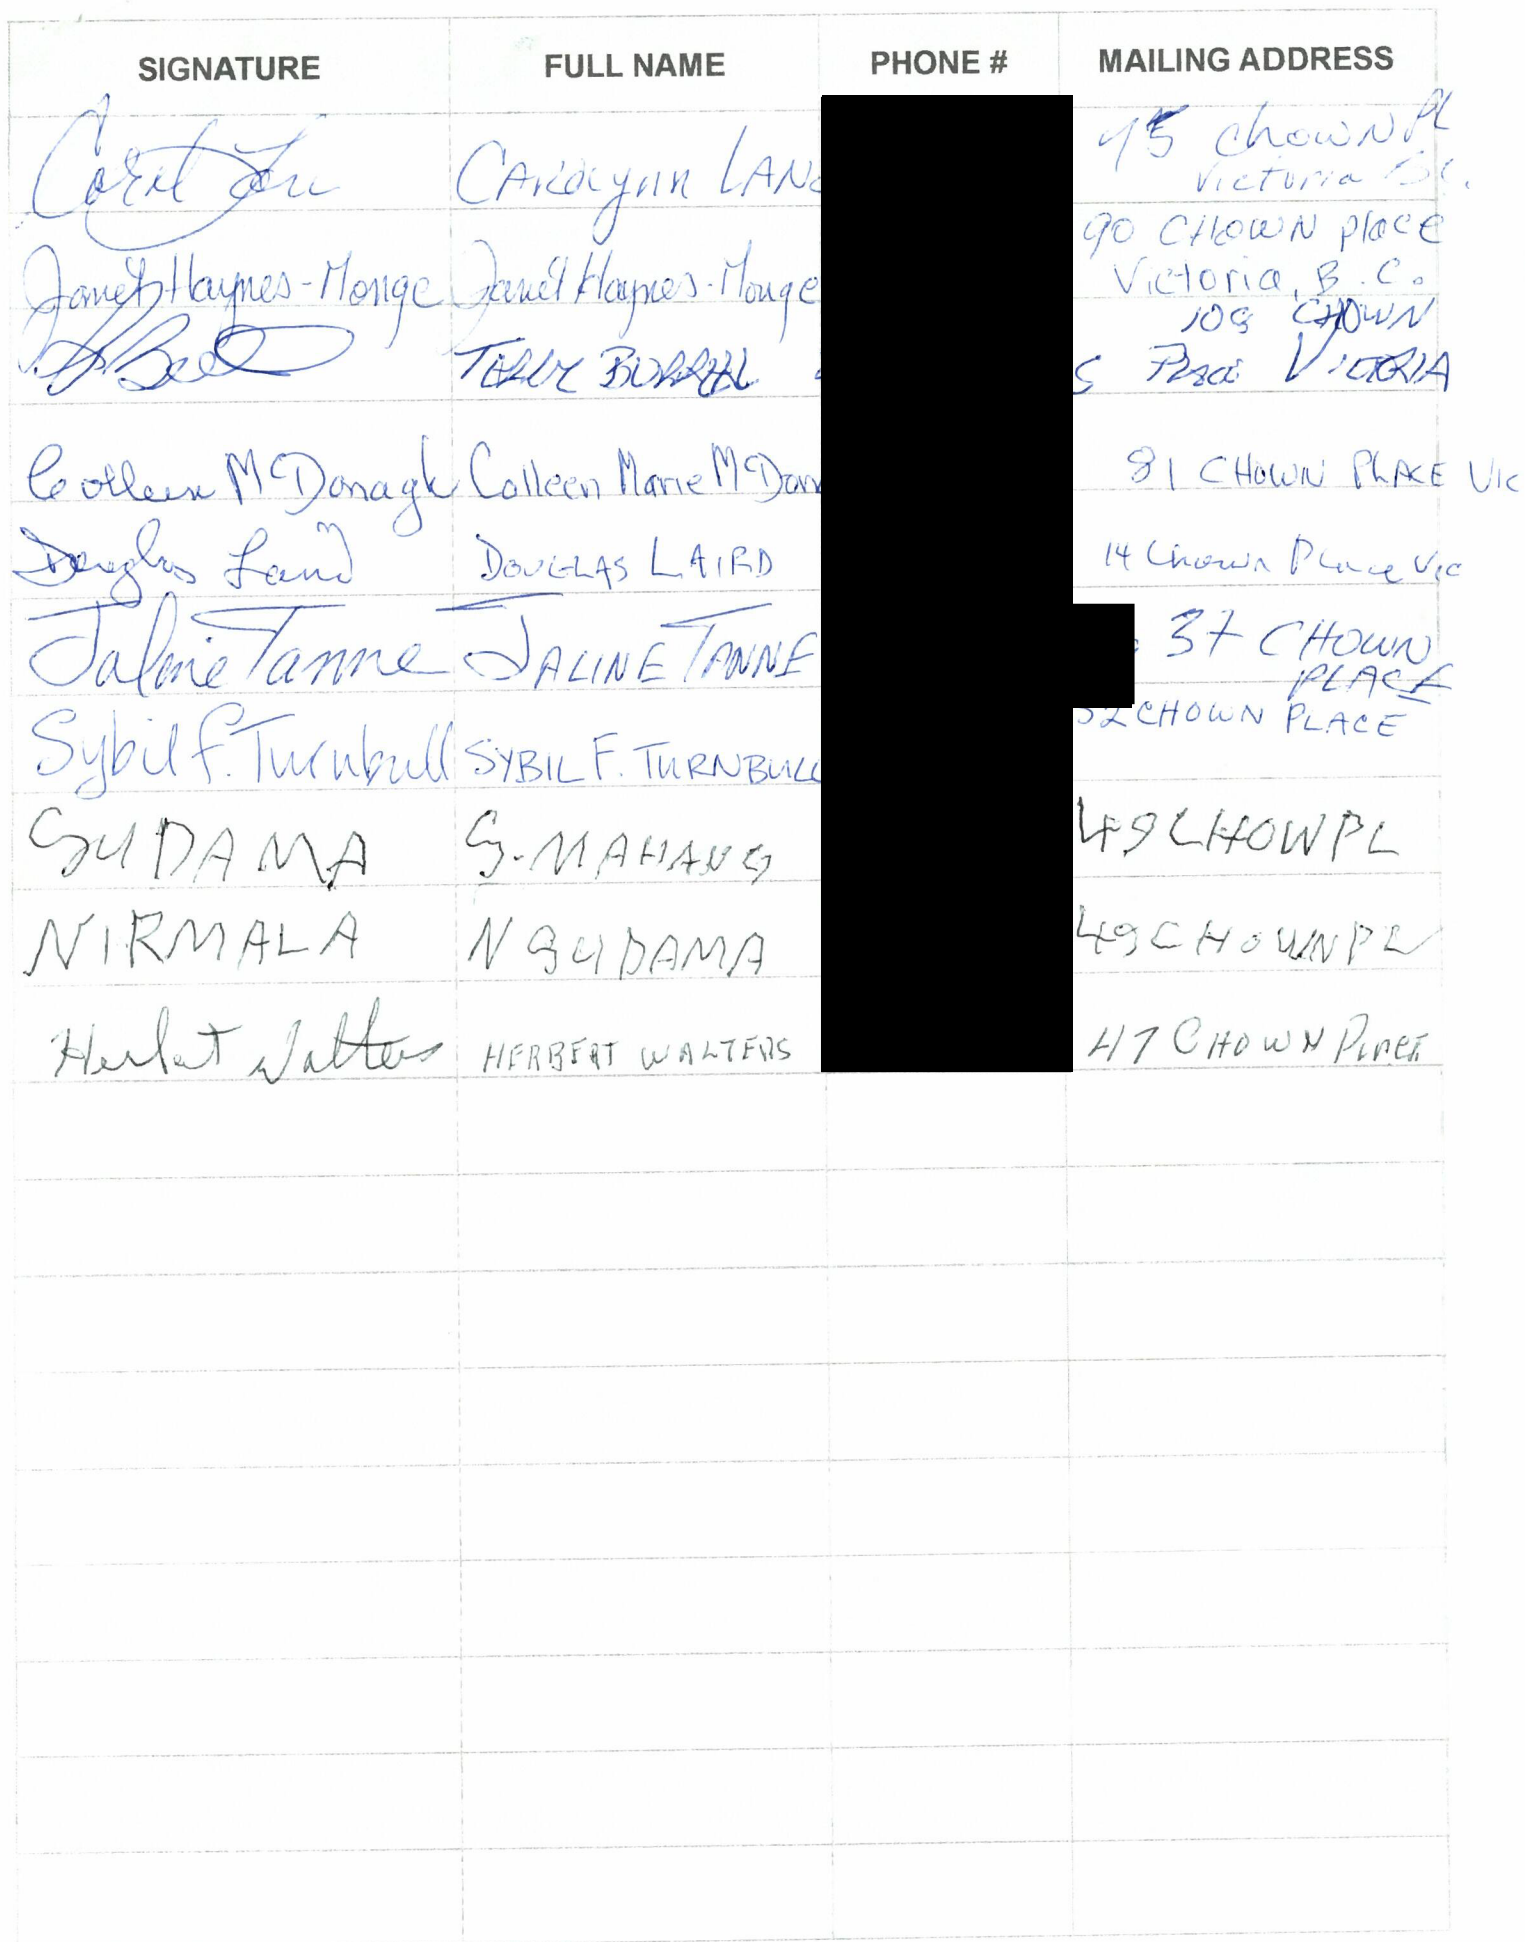 SIGNATURE FULL NAME PHONE # MAILING ADDRESS
Carolynn LAN 95 Chown PL
Victoria BC.
Janet Haynes-Monge Janet Haynes-Monge 90 CHOWN Place
Victoria, B.C.
108 CHOWN
TERRY BURRELL Place VICTORIA
Colleen McDonagh Colleen Marie McDon 81 CHOWN PLACE VIC
Douglas Laird DOUGLAS LAIRD 14 Chown Place Vic
Jaline Tanne JALINE TANNE 37 CHOWN
PLACE
Sybil F. Turnbull SYBIL F. TURNBULL 52 CHOWN PLACE
SUDAMA S-MAHANG 49 CHOWPL
NIRMALA N SUDAMA 49 CHOWN PL
Herbert Walters HERBERT WALTERS 47 CHOWN PLACE